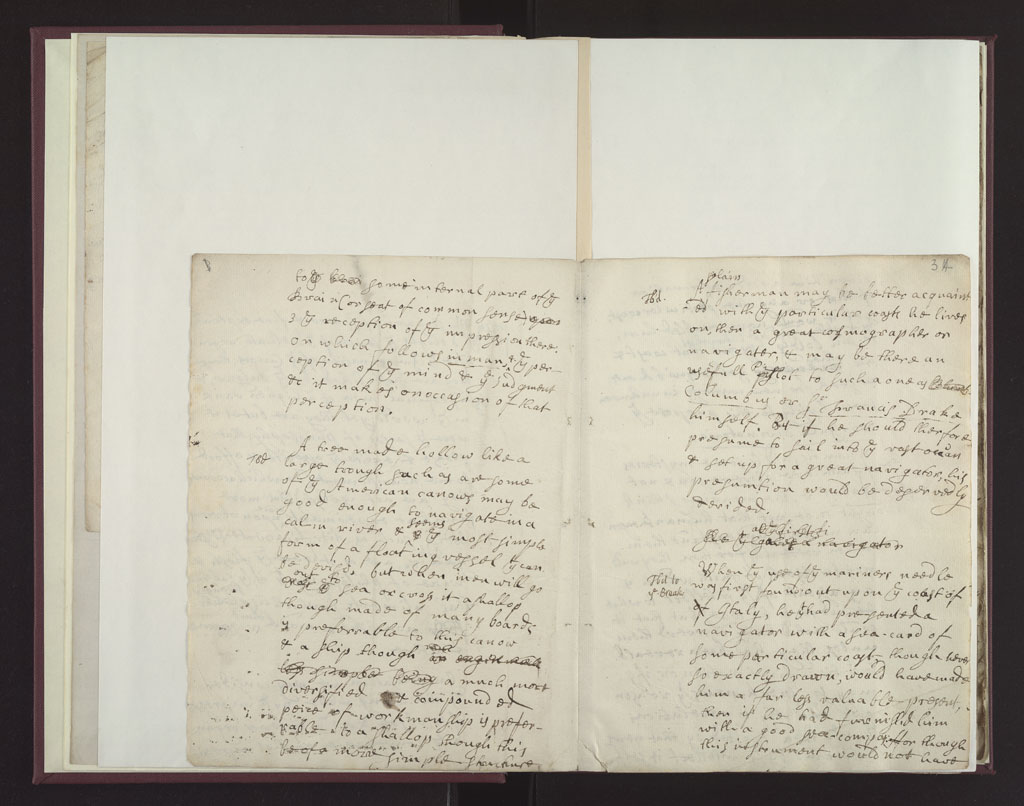 to some internal part of ye
Brain (or seat of common sense
3 ye reception of ye impression there:
on which follows in man, ye per-
ception of ye mind & ye Judgment
& it makes on occasion of that
perception.
Ibd
A tree made hollow like a
large trough such as are some
of ye American canows may be
good enough to navigate in a
calm river & seems ye most simple
form of a floating vessel yt can
be devis'd. but when men will go
out to sea or cross it a shallop
though made of many boards
is preferrable to this canow
& a ship though
being a much more
diversified & compounded
peice of workmanship is prefer-
rable to a shallop though this
be of a more simple structure
34
plain
Ibd.
A fisherman may be better acquaint
ed with ye particular coast he lives
on, then a great cosmographer or
navigater, & may be there an
usefull Pilot to such a one as
Columbus or Sr Francis Drake
himself. But if he should therfore
presume to sail into ye vast ocean
& set up for a great navigator, his
presumtion would be deservedly
derided.
Ibd to
ye Break
When ye use of ye mariners needle
was first found out upon ye coast of
Italy, he yt had presented a
navigator with a sea-card of
some particular coast, though never
so exactly drawn, would have made
him a far less valuable present,
then if he had furnish'd him
with a good sea-compass for though
this instrument would not have